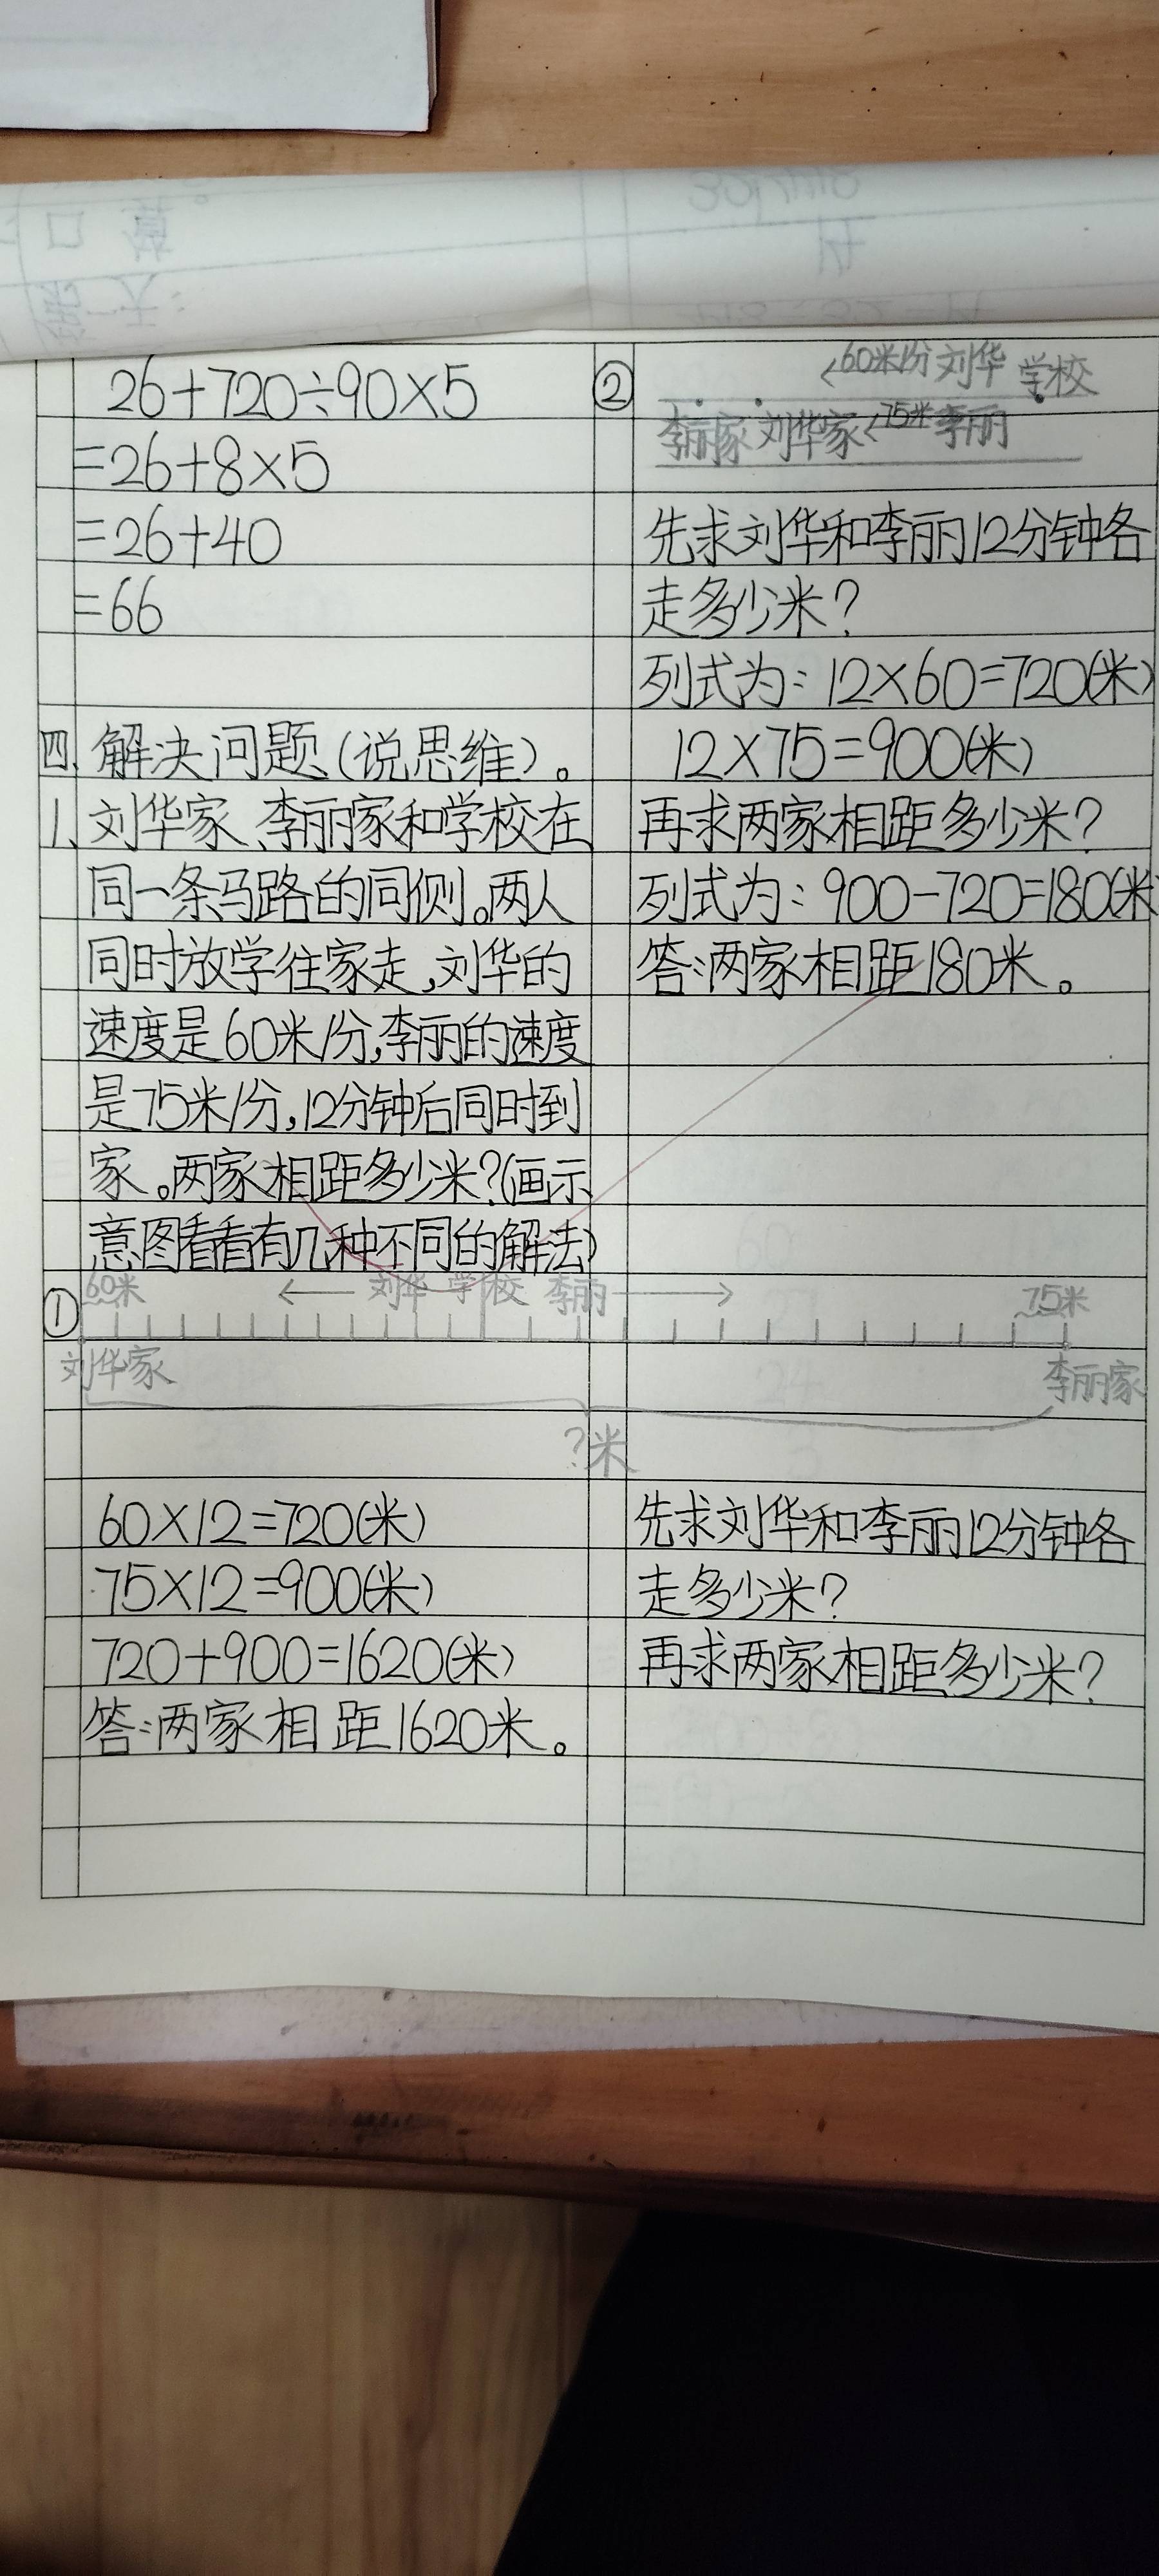 口算。
26+720÷90×5
=26+8×5
=26+40
=66
四、解决问题(说思维)。
1、刘华家、李丽家和学校在
同一条马路的同侧。两人
同时放学往家走,刘华的
速度是60米/分,李丽的速度
是75米/分,12分钟后同时到
家。两家相距多少米?(画示
意图看看有几种不同的解法)
① 60米 ← 刘华 学校 李丽 → 75米
刘华家 李丽家
?米
60×12=720(米)
75×12=900(米)
720+900=1620(米)
答:两家相距1620米。
② ←60米/分 刘华 学校
李丽家 刘华家 ←75米 李丽
先求刘华和李丽12分钟各
走多少米?
列式为:12×60=720(米)
12×75=900(米)
再求两家相距多少米?
列式为:900-720=180(米)
答:两家相距180米。
先求刘华和李丽12分钟各
走多少米?
再求两家相距多少米?